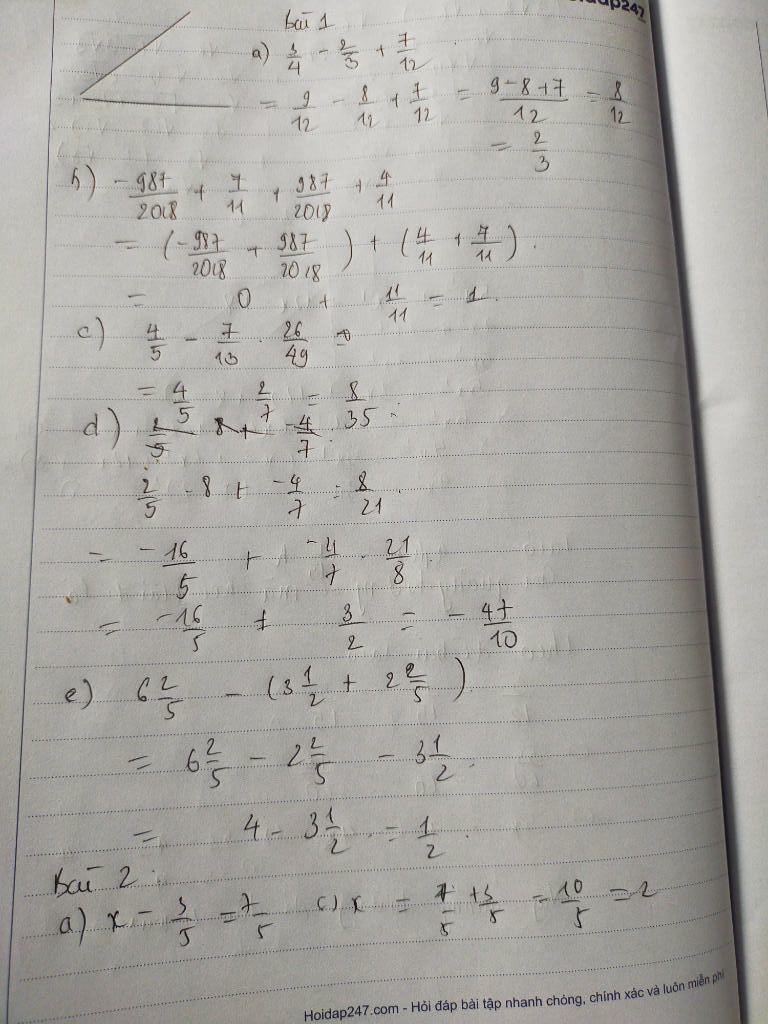 Bài 1
a) 3/4 - 2/3 + 7/12
= 9/12 - 8/12 + 7/12 = (9-8+7)/12 = 8/12
= 2/3
b) -987/2018 + 7/11 + 987/2018 + 4/11
= (-987/2018 + 987/2018) + (4/11 + 7/11).
= 0 + 11/11 = 1.
c) 4/5 - 7/13 . 26/49 =
= 4/5 2/7 = 8/35
d) 2/5 8 + -4/7
2/5 . -8 + -4/7 : 8/21.
= -16/5 + -4/7 . 21/8
= -16/5 + 3/2 = -47/10
e) 6 2/5 - (3 1/2 + 2 2/5)
= 6 2/5 - 2 2/5 - 3 1/2.
= 4 - 3 1/2 = 1/2.
Bài 2
a) x - 3/5 = 7/5 x = 7/5 + 3/5 = 10/5 = 2
Hoidap247.com - Hỏi đáp bài tập nhanh chóng, chính xác và luôn miễn phí